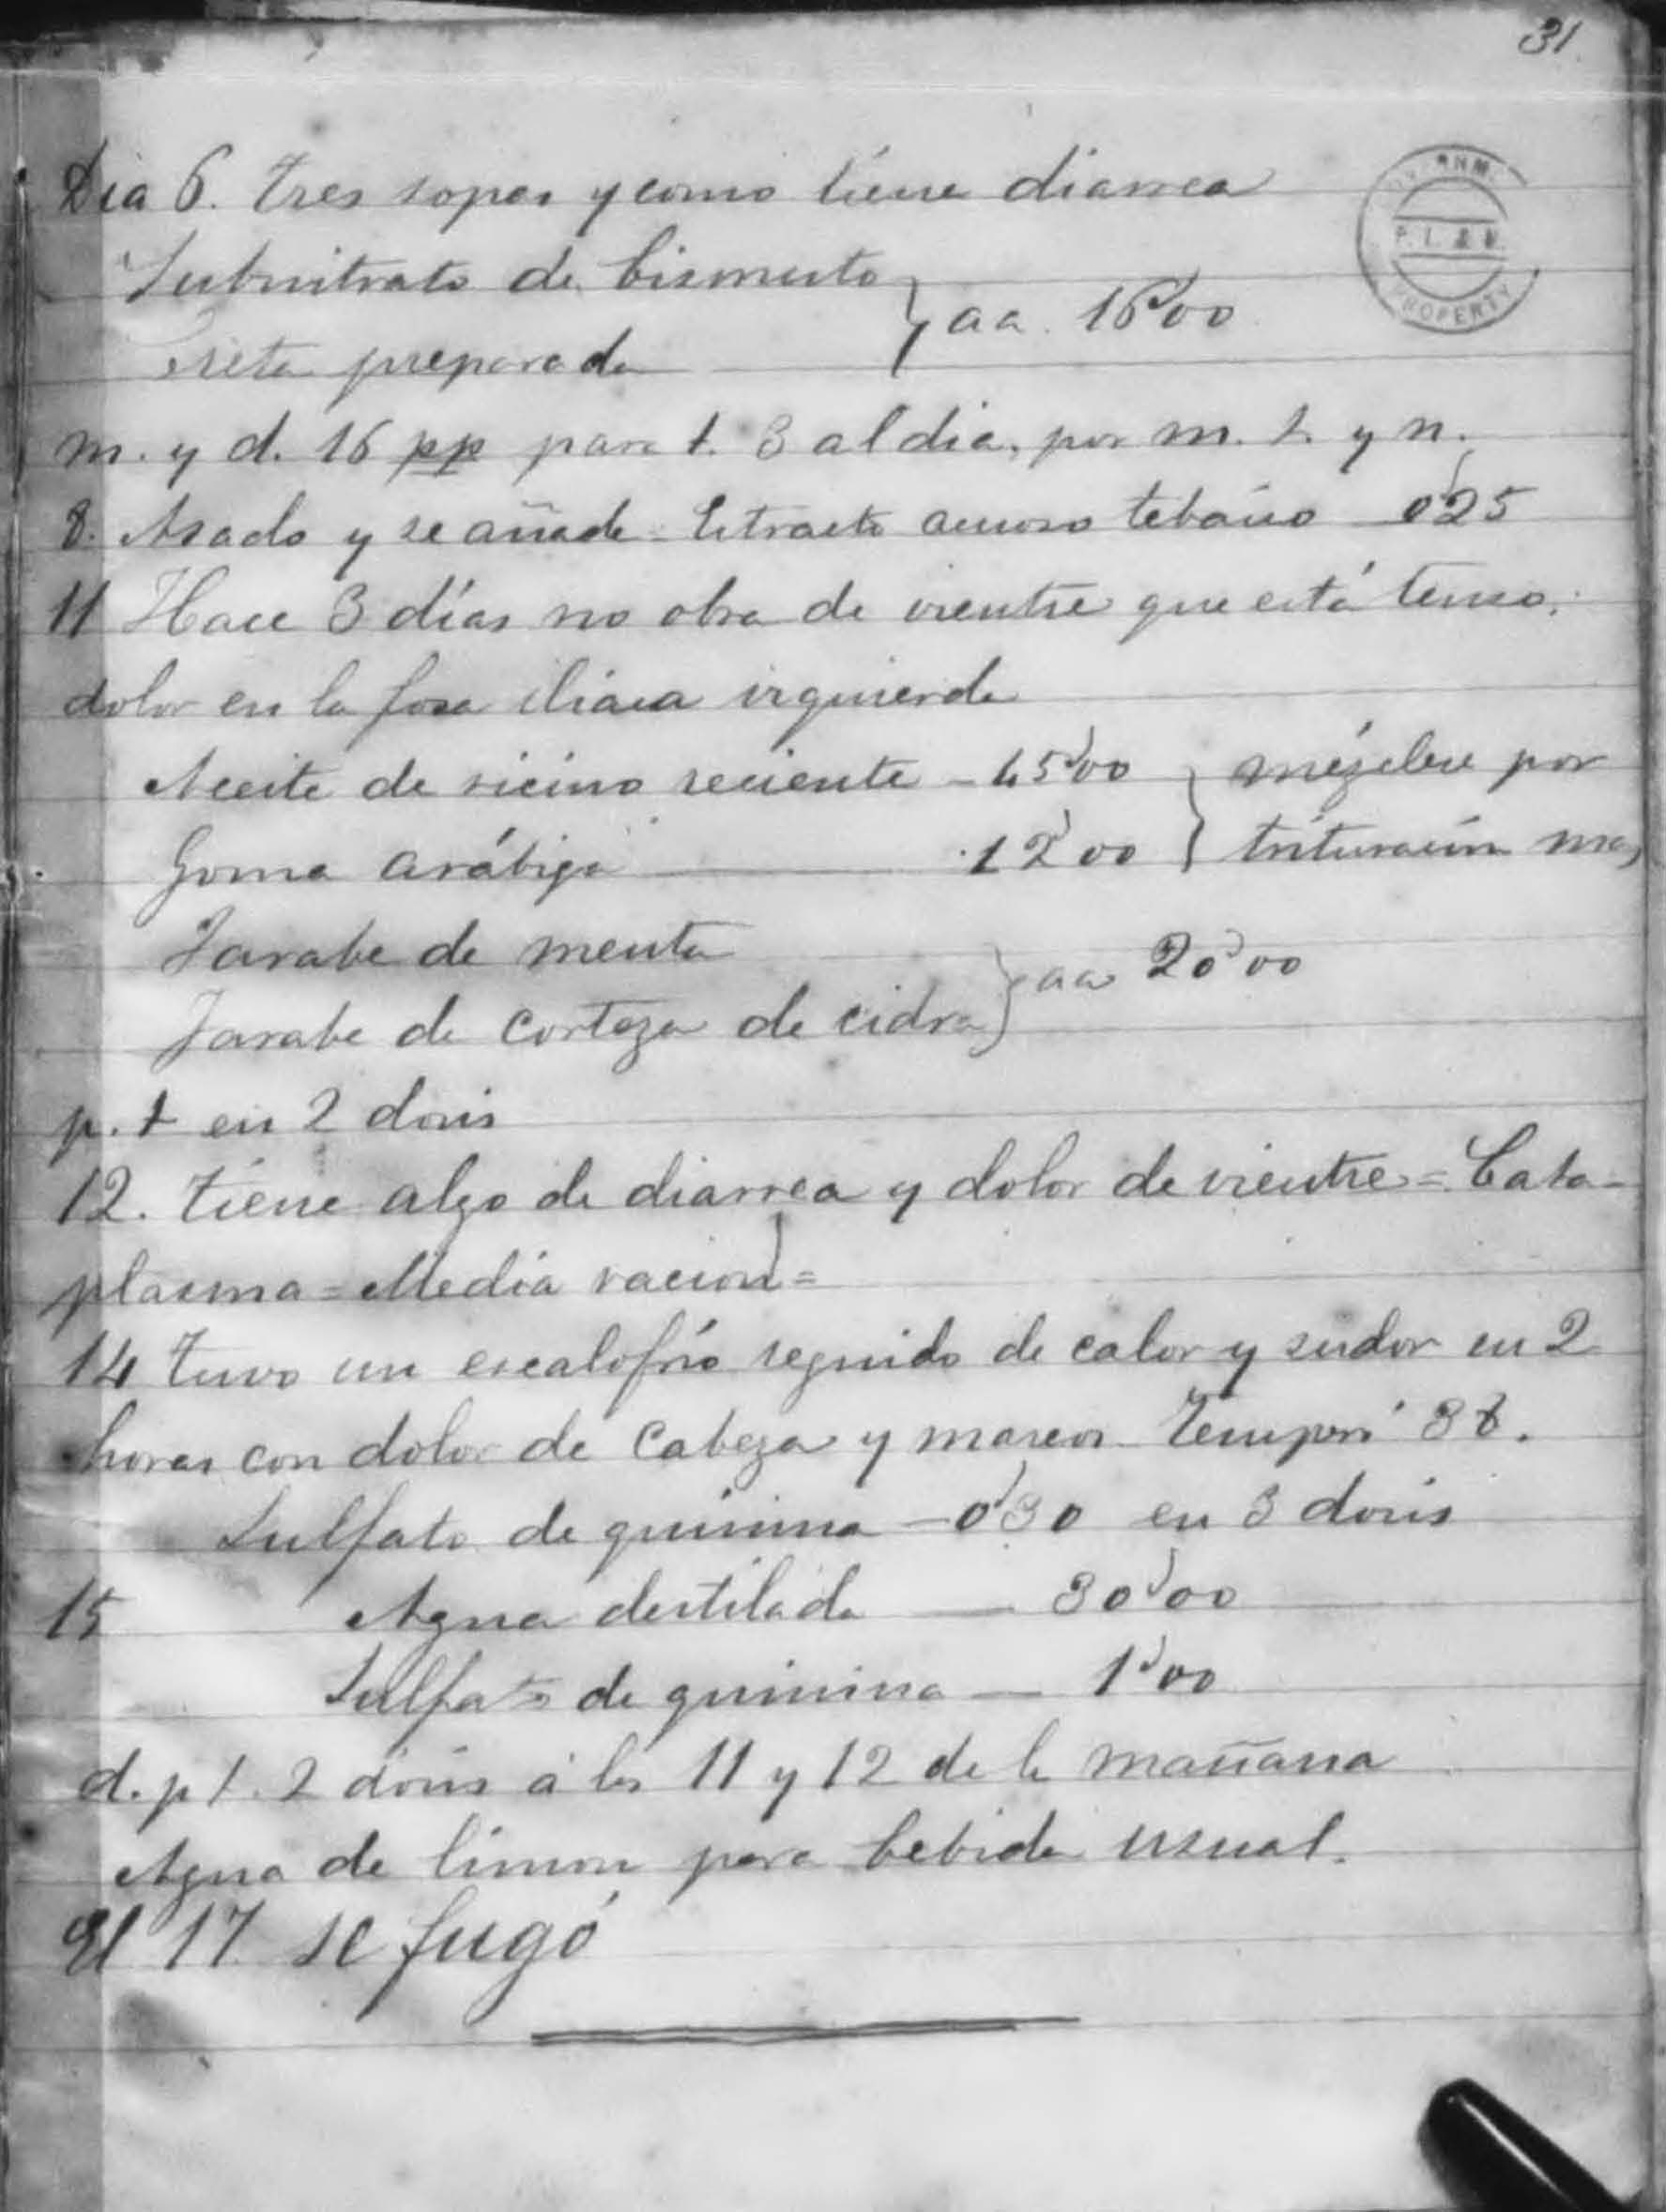 31
Dia 6. tres sopas y como tiene diarrea
Subnitrato de bismuto } aa. 16'00
Creta preparada
m. y d. 16 pp para t. 3 al dia, por m. t. y n.
8. Asado y se añade Estracto acuoso tebaico 0'25
11 Hace 3 días no obra de vientre que está tenso.
dolor en la fosa iliaca izquierda
Aceite de ricino reciente - 45'00 } mézclese por
Goma arábiga 12'00 } trituración mas
Jarabe de menta } aa 20'00
Jarabe de corteza de cidra
p. t en 2 dosis
12. tiene algo de diarrea y dolor de vientre = Cata-
plasma = Media racion =
14 tuvo un escalofrío seguido de calor y sudor en 2
horas con dolor de cabeza y mareos. Temper.ª 38.
Sulfato de quinina - 0'30 en 3 dosis
15 Agua destilada - 30'00
Sulfato de quinina - 1'00
d. p t. 2 dosis á las 11 y 12 de la mañana
Agua de limon para bebida usual.
El 17 se fugó
P.I.R.
PROPERTY